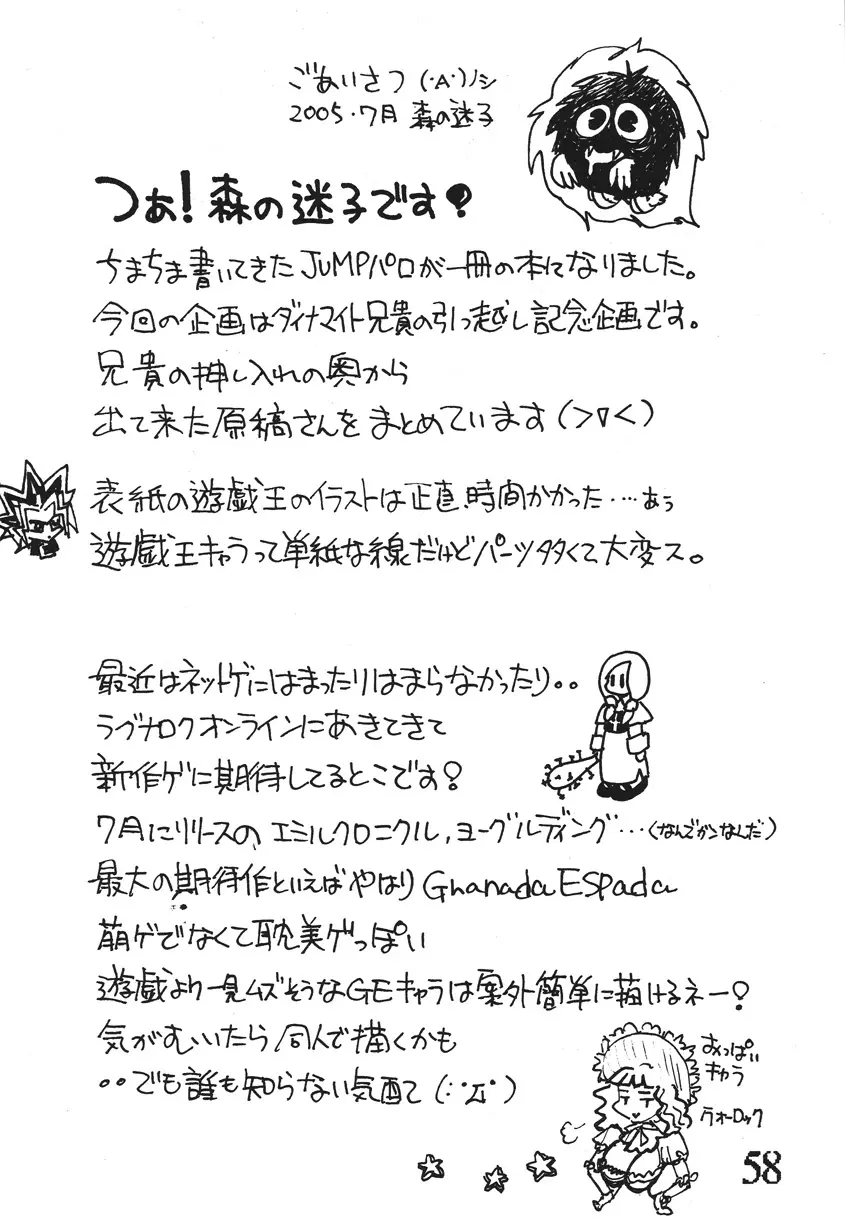 ごあいさつ (・A・)ノシ
2005・7月 森の迷子
つぁ!森の迷子です?
ちまちま書いてきたJUMPパロが一冊の本になりました。
今回の企画はダイナマイト兄貴の引っ越し記念企画です。
兄貴の押し入れの奥から
出て来た原稿さんをまとめています(>▽<)
表紙の遊戯王のイラストは正直時間かかった‥‥あぅ
遊戯王キャラって単純な線だけどパーツ多くて大変ス。
最近はネットゲにはまったりはまらなかったり。。
ラグナロクオンラインにあきてきて
新作ゲに期待してるとこです?
7月にリリースの、エミルクロニクル,ヨーグルディング…(なんでかんなんだ)
最大の期待作といえばやはりGranada ESpada
萌ゲでなくて耽美ゲっぽい
遊戯より一見ムズそうなGEキャラは案外簡単に描けるネー?
気がむいたら同人で描くかも
・・でも誰も知らない気配て(;゚Д゚)
おっぱい
キャラ
ウォーロック
58